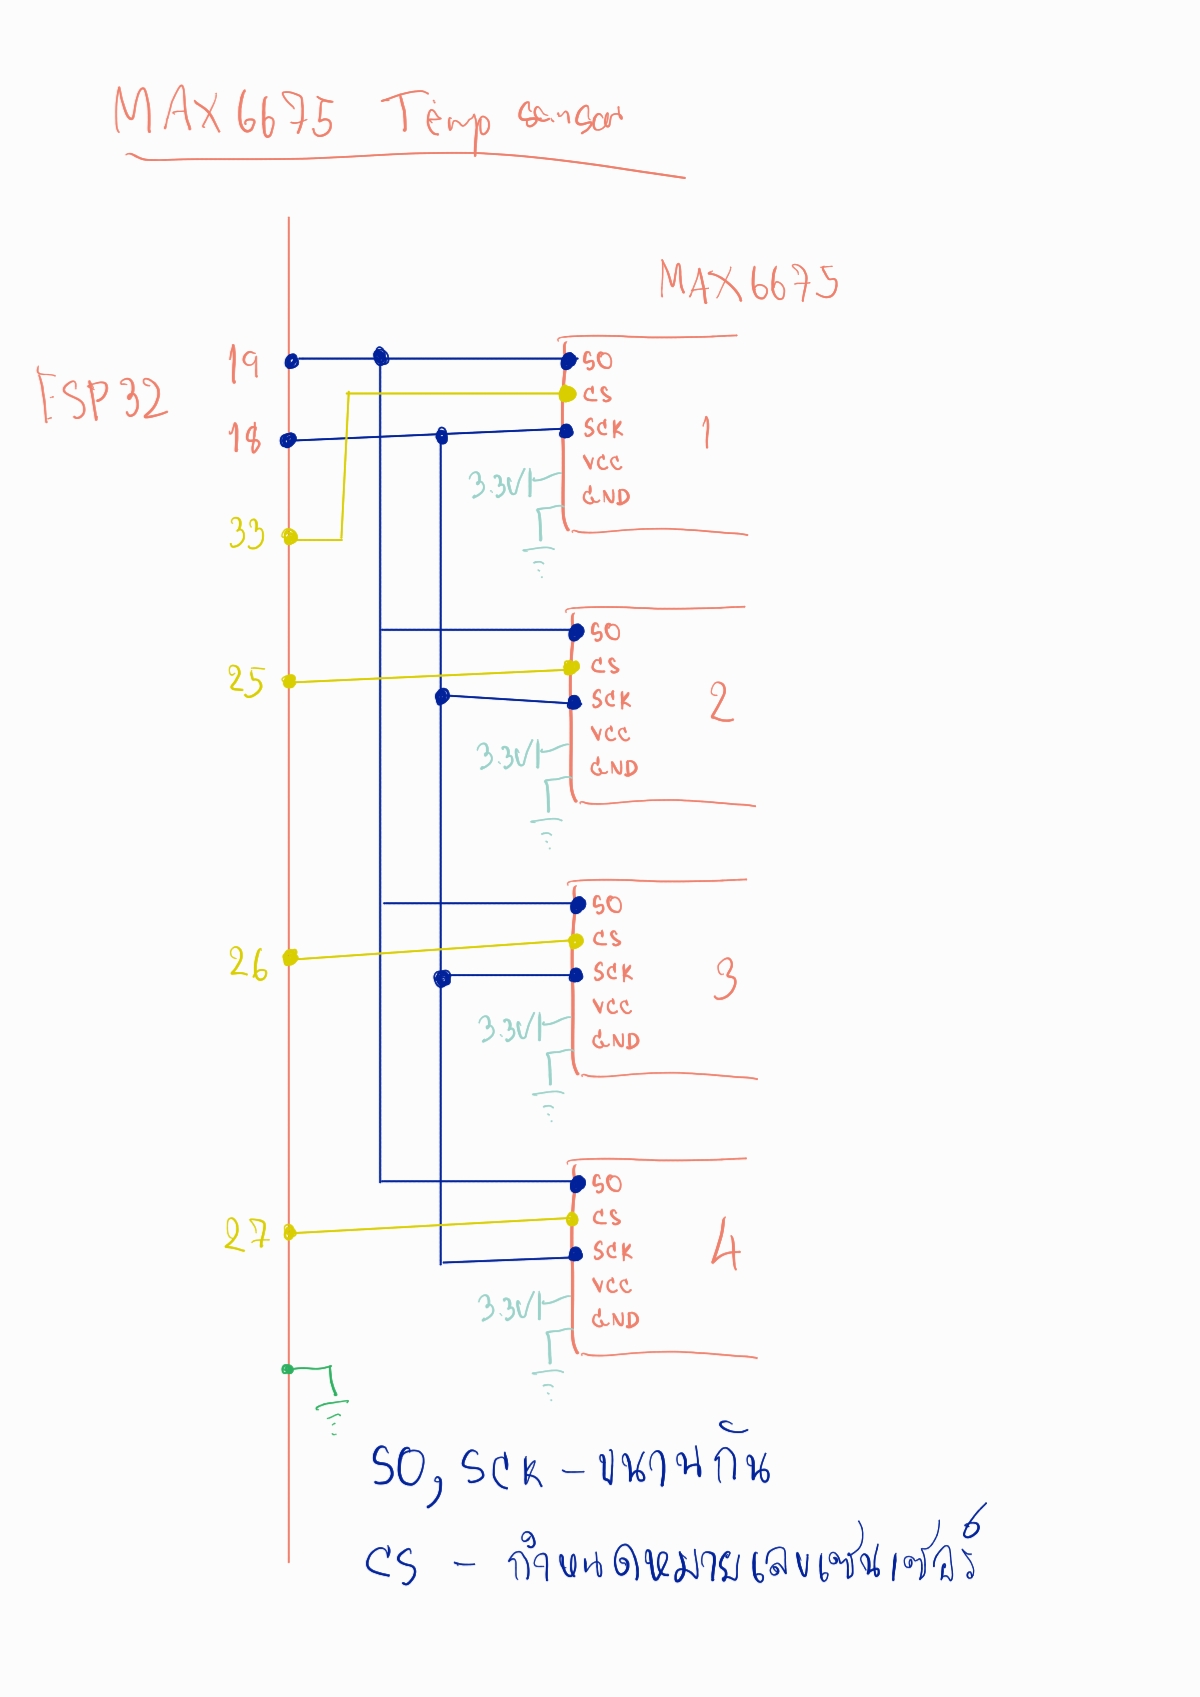 MAX6675 Temp sensor
MAX6675
ESP32
19
18
33
SO
CS
SCK
VCC
GND
1
3.3V
25
SO
CS
SCK
VCC
GND
2
3.3V
26
SO
CS
SCK
VCC
GND
3
3.3V
27
SO
CS
SCK
VCC
GND
4
3.3V
SO, SCK - ขนานกัน
CS - กำหนดหมายเลขเซ็นเซอร์